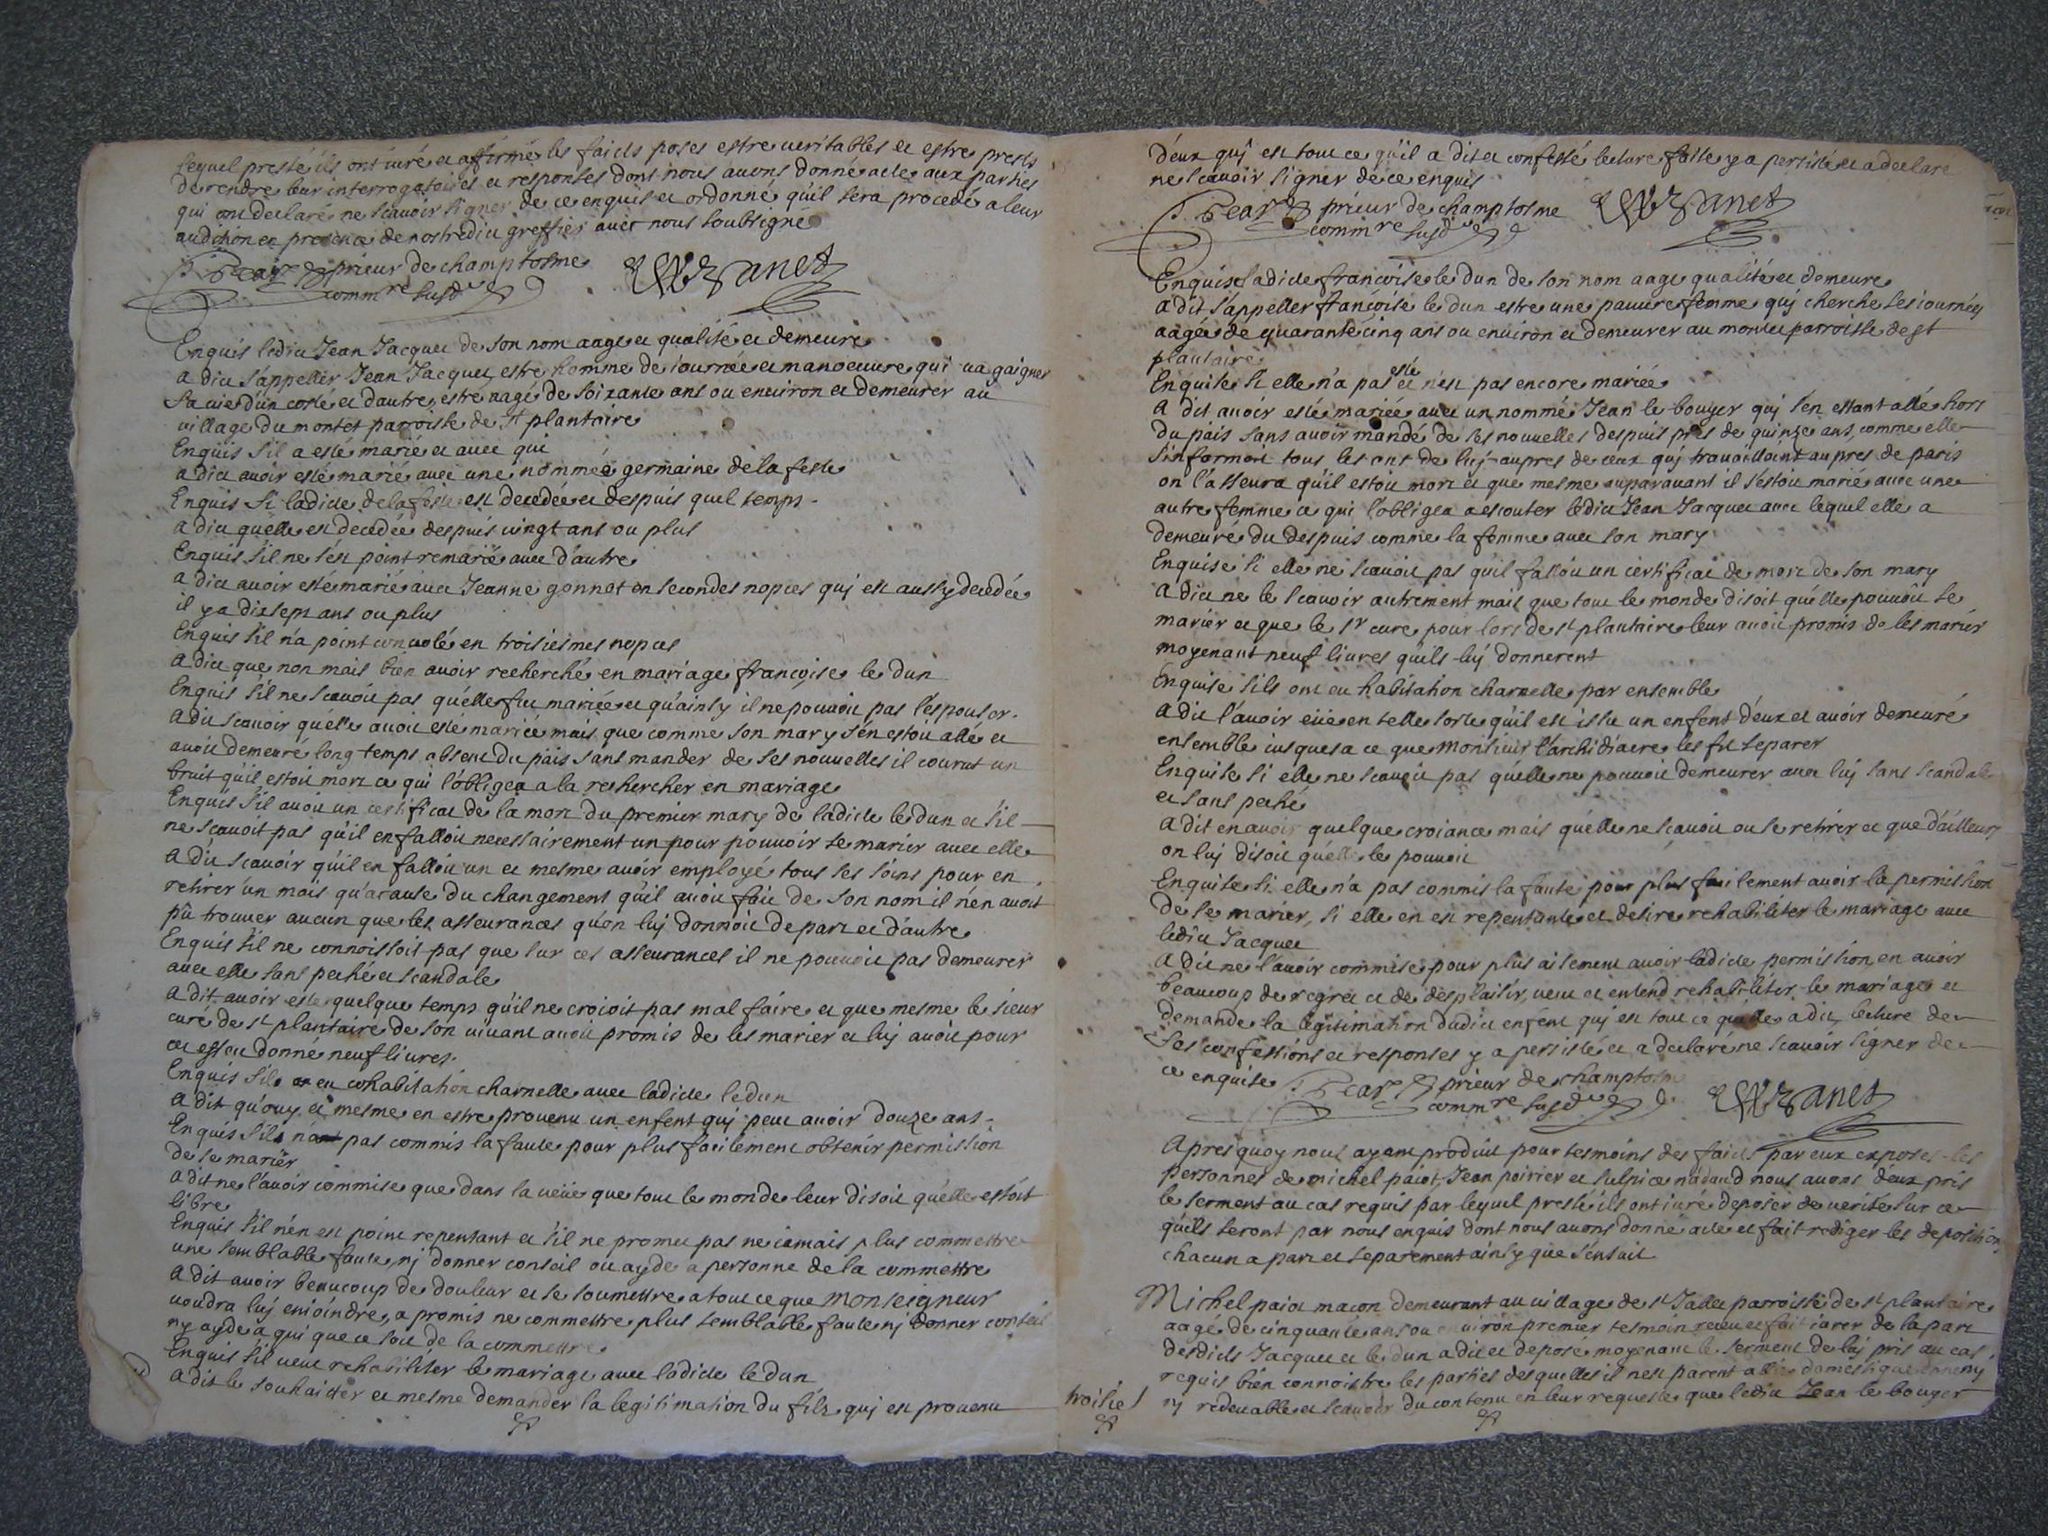 lequel presté ils ont iuré et affirmé les faicts poses estre veritables et estre prests
de rendre leur interrogatoires et responses dont nous avons donné acte aux parties
qui ont declaré ne scavoir signer de ce enquis et ordonné qu'il sera procedé a leur
audition en presence de nostredict greffier avec nous soubsigné
prieur de champtosme
commre susd
Enquis ledict Jean Jacquet de son nom aage et qualité et demeure
a dict s'appeller Jean Jacquet, estre homme de iournée et manoeuvre qui va gaigner
sa vie d'un costé et d'autre, estre aagé de soixante ans ou environ et demeurer au
village du montet parroisse de st plantaire
Enquis s'il a esté marié et avec qui
a dict avoir esté marié avec une nommée germaine de la feste
Enquis si ladicte de la feste est decedée et despuis quel temps
a dict qu'elle est decedée despuis vingt ans ou plus
Enquis s'il ne s'est point remarié avec d'autre
a dict avoir esté marié avec Jeanne gonnet en secondes nopces qui est aussy decedée
il y a dix sept ans ou plus
Enquis s'il n'a point convolé en troisiesmes nopces
a dict que non mais bien avoir recherché en mariage francoise le dun
Enquis s'il ne scavoit pas qu'elle fut mariée et qu'ainsy il ne pouvoit pas l'espouser
a dict scavoir qu'elle avoit esté mariée mais que comme son mary s'en estoit allé et
avoit demeuré long temps absent du pais sans mander de ses nouvelles il courut un
bruit qu'il estoit mort ce qui l'obligea a la rechercher en mariage
Enquis s'il avoit un certificat de la mort du premier mary de ladicte le dun et s'il
ne scavoit pas qu'il en falloit necessairement un pour pouvoir se marier avec elle
a dict scavoir qu'il en falloit un et mesme avoir employé tous ses soins pour en
retirer un mais qu'a cause du changement qu'il avoit fait de son nom il n'en avoit
pû trouver aucun que les asseurances qu'on luy donnoit de part et d'autre
Enquis s'il ne connoissoit pas que sur ces asseurances il ne pouvoit pas demeurer
avec elle sans peché et scandale
a dit avoir esté quelque temps qu'il ne croioit pas mal faire et que mesme le sieur
curé de st plantaire de son vivant avoit promis de les marier et luy avoit pour
cet effect donné neuf livres
Enquis s'il a eu cohabitation charnelle avec ladicte le dun
a dit qu'ouy et mesme en estre provenu un enfent qui peut avoir douze ans
Enquis s'il n'a pas commis la faute pour plus facilement obtenir permission
de se marier
a dit ne l'avoir commise que dans la veüe que tout le monde leur disoit qu'elle estoit
libre
Enquis s'il n'en est point repentant et s'il ne promet pas ne iamais plus commettre
une semblable faute, ny donner conseil ou ayde a personne de la commettre
a dit avoir beaucoup de douleur et se soumettre a tout ce que Monseigneur
voudra luy enioindre, a promis ne commettre plus semblable faute ny donner conseil
ny ayde a qui que ce soit de la commettre
Enquis s'il veut rehabiliter le mariage avec ladicte le dun
a dit le souhaitter et mesme demander la legitimation du fils qui est provenu
d'eux qui est tout ce qu'il a dit et confessé lecture faite y a persisté et a declaré
ne scavoir signer de ce enquis
prieur de champtosme
commre susd
Enquise ladicte francoise le dun de son nom aage qualité et demeure
a dit s'appeller francoise le dun estre une pauvre femme qui cherche ses iournées
aagée de quarante cinq ans ou environ et demeurer au montet parroisse de st
plantaire
Enquise si elle n'a pas esté et n'est pas encore mariée
a dit avoir esté mariée avec un nommé Jean le bouyer qui s'en estant allé hors
du pais sans avoir mandé de ses nouvelles despuis prés de quinze ans, comme elle
s'informoit tous les ans de luy aupres de ceux qui travailloint aupres de paris
on l'asseura qu'il estoit mort et que mesme auparavant il s'estoit marié avec une
autre femme ce qui l'obligea a escouter ledict Jean Jacquet avec lequel elle a
demeuré du despuis comme la femme avec son mary
Enquise si elle ne scavoit pas qu'il falloit un certificat de mort de son mary
a dict ne le scavoir autrement mais que tout le monde disoit qu'elle pouvoit se
marier et que le sr curé pour lors de st plantaire leur avoit promis de les marier
moyenant neuf livres qu'ils luy donnerent
Enquise s'ils ont eu habitation charnelle par ensemble
a dit l'avoir eüe en telle sorte qu'il est issu un enfent d'eux et avoir demeuré
ensemble iusques a ce que Monsieur l'archidiacre les fit separer
Enquise si elle ne scavoit pas qu'elle ne pouvoit demeurer avec luy sans scandale
et sans peché
a dit en avoir quelque croiance mais qu'elle ne scavoit ou se retirer et que d'ailleurs
on luy disoit qu'elle le pouvoit
Enquise si elle n'a pas commis la faute pour plus facilement avoir la permission
de se marier, si elle en est repentante et desire rehabiliter le mariage avec
ledict Jacquet
a dit ne l'avoir commise pour plus aisement avoir ladicte permission, en avoir
beaucoup de regret et de desplaisir, veut et entend rehabiliter le mariage et
demande la legitimation dudict enfent qui est tout ce qu'elle a dit, lecture de
ses confessions et responses y a persisté et a declaré ne scavoir signer de
ce enquise
prieur de champtosme
commre susd
Apres quoy nous ayant produit pour tesmoins des faicts par eux exposés les
personnes de michel paiot, Jean poirier et sulpice nadaud nous avons d'eux pris
le serment au cas requis par lequel presté ils ont iuré deposer de verité sur ce
qu'ils seront par nous enquis dont nous avons donné acte et fait rediger les depositions
chacun a part et separement ainsy que s'ensuit
Michel paiot macon demeurant au village de st Jallet parroisse de st plantaire
aagé de cinquante ans ou environ premier tesmoin receu et fait iurer de la part
desdicts Jacquet et le dun a dict et deposé moyenant le serment de luy pris au cas
requis bien connoistre les parties desquelles il n'est parent allié domestique
ny redevable et scavoir du contenu en leur requeste que ledict Jean le bouyer